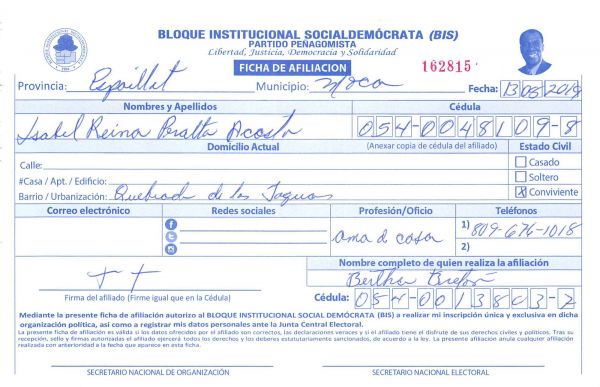 BLOQUE INSTITUCIONAL SOCIALDEMÓCRATA (BIS)
PARTIDO PEÑAGOMISTA
Libertad, Justicia, Democracia y Solidaridad
FICHA DE AFILIACION 162815
Provincia: Espaillat Municipio: Moca Fecha: 13 03 2019
Nombres y Apellidos Cédula
Isabel Reina Peralta Acosta 054-0048109-8
Domicilio Actual (Anexar copia de cédula del afiliado) Estado Civil
Calle: Casado
#Casa / Apt. / Edificio: Soltero
Barrio / Urbanización: Quebrada de los Jaguas X Conviviente
Correo electrónico Redes sociales Profesión/Oficio Teléfonos
ama d casa 1) 809-676-1018
2)
Nombre completo de quien realiza la afiliación
Bertha Bretón
Firma del afiliado (Firme igual que en la Cédula) Cédula: 054-0013803-2
Mediante la presente ficha de afiliación autorizo al BLOQUE INSTITUCIONAL SOCIAL DEMÓCRATA (BIS) a realizar mi inscripción única y exclusiva en dicha
organización política, así como a registrar mis datos personales ante la Junta Central Electoral.
La presente ficha de afiliación es válida si los datos ofrecidos por el afiliado son correctos, las declaraciones veraces y si el afiliado tiene el disfrute de sus derechos civiles y políticos. Tras su
recepción, sello y firmas autorizadas el afiliado ejercerá todos los derechos y los deberes estatutariamente sancionados, de acuerdo a la ley. La presente afiliación anula cualquier afiliación
realizada con anterioridad a la fecha que aparece en esta ficha.
SECRETARIO NACIONAL DE ORGANIZACIÓN SECRETARIO NACIONAL ELECTORAL